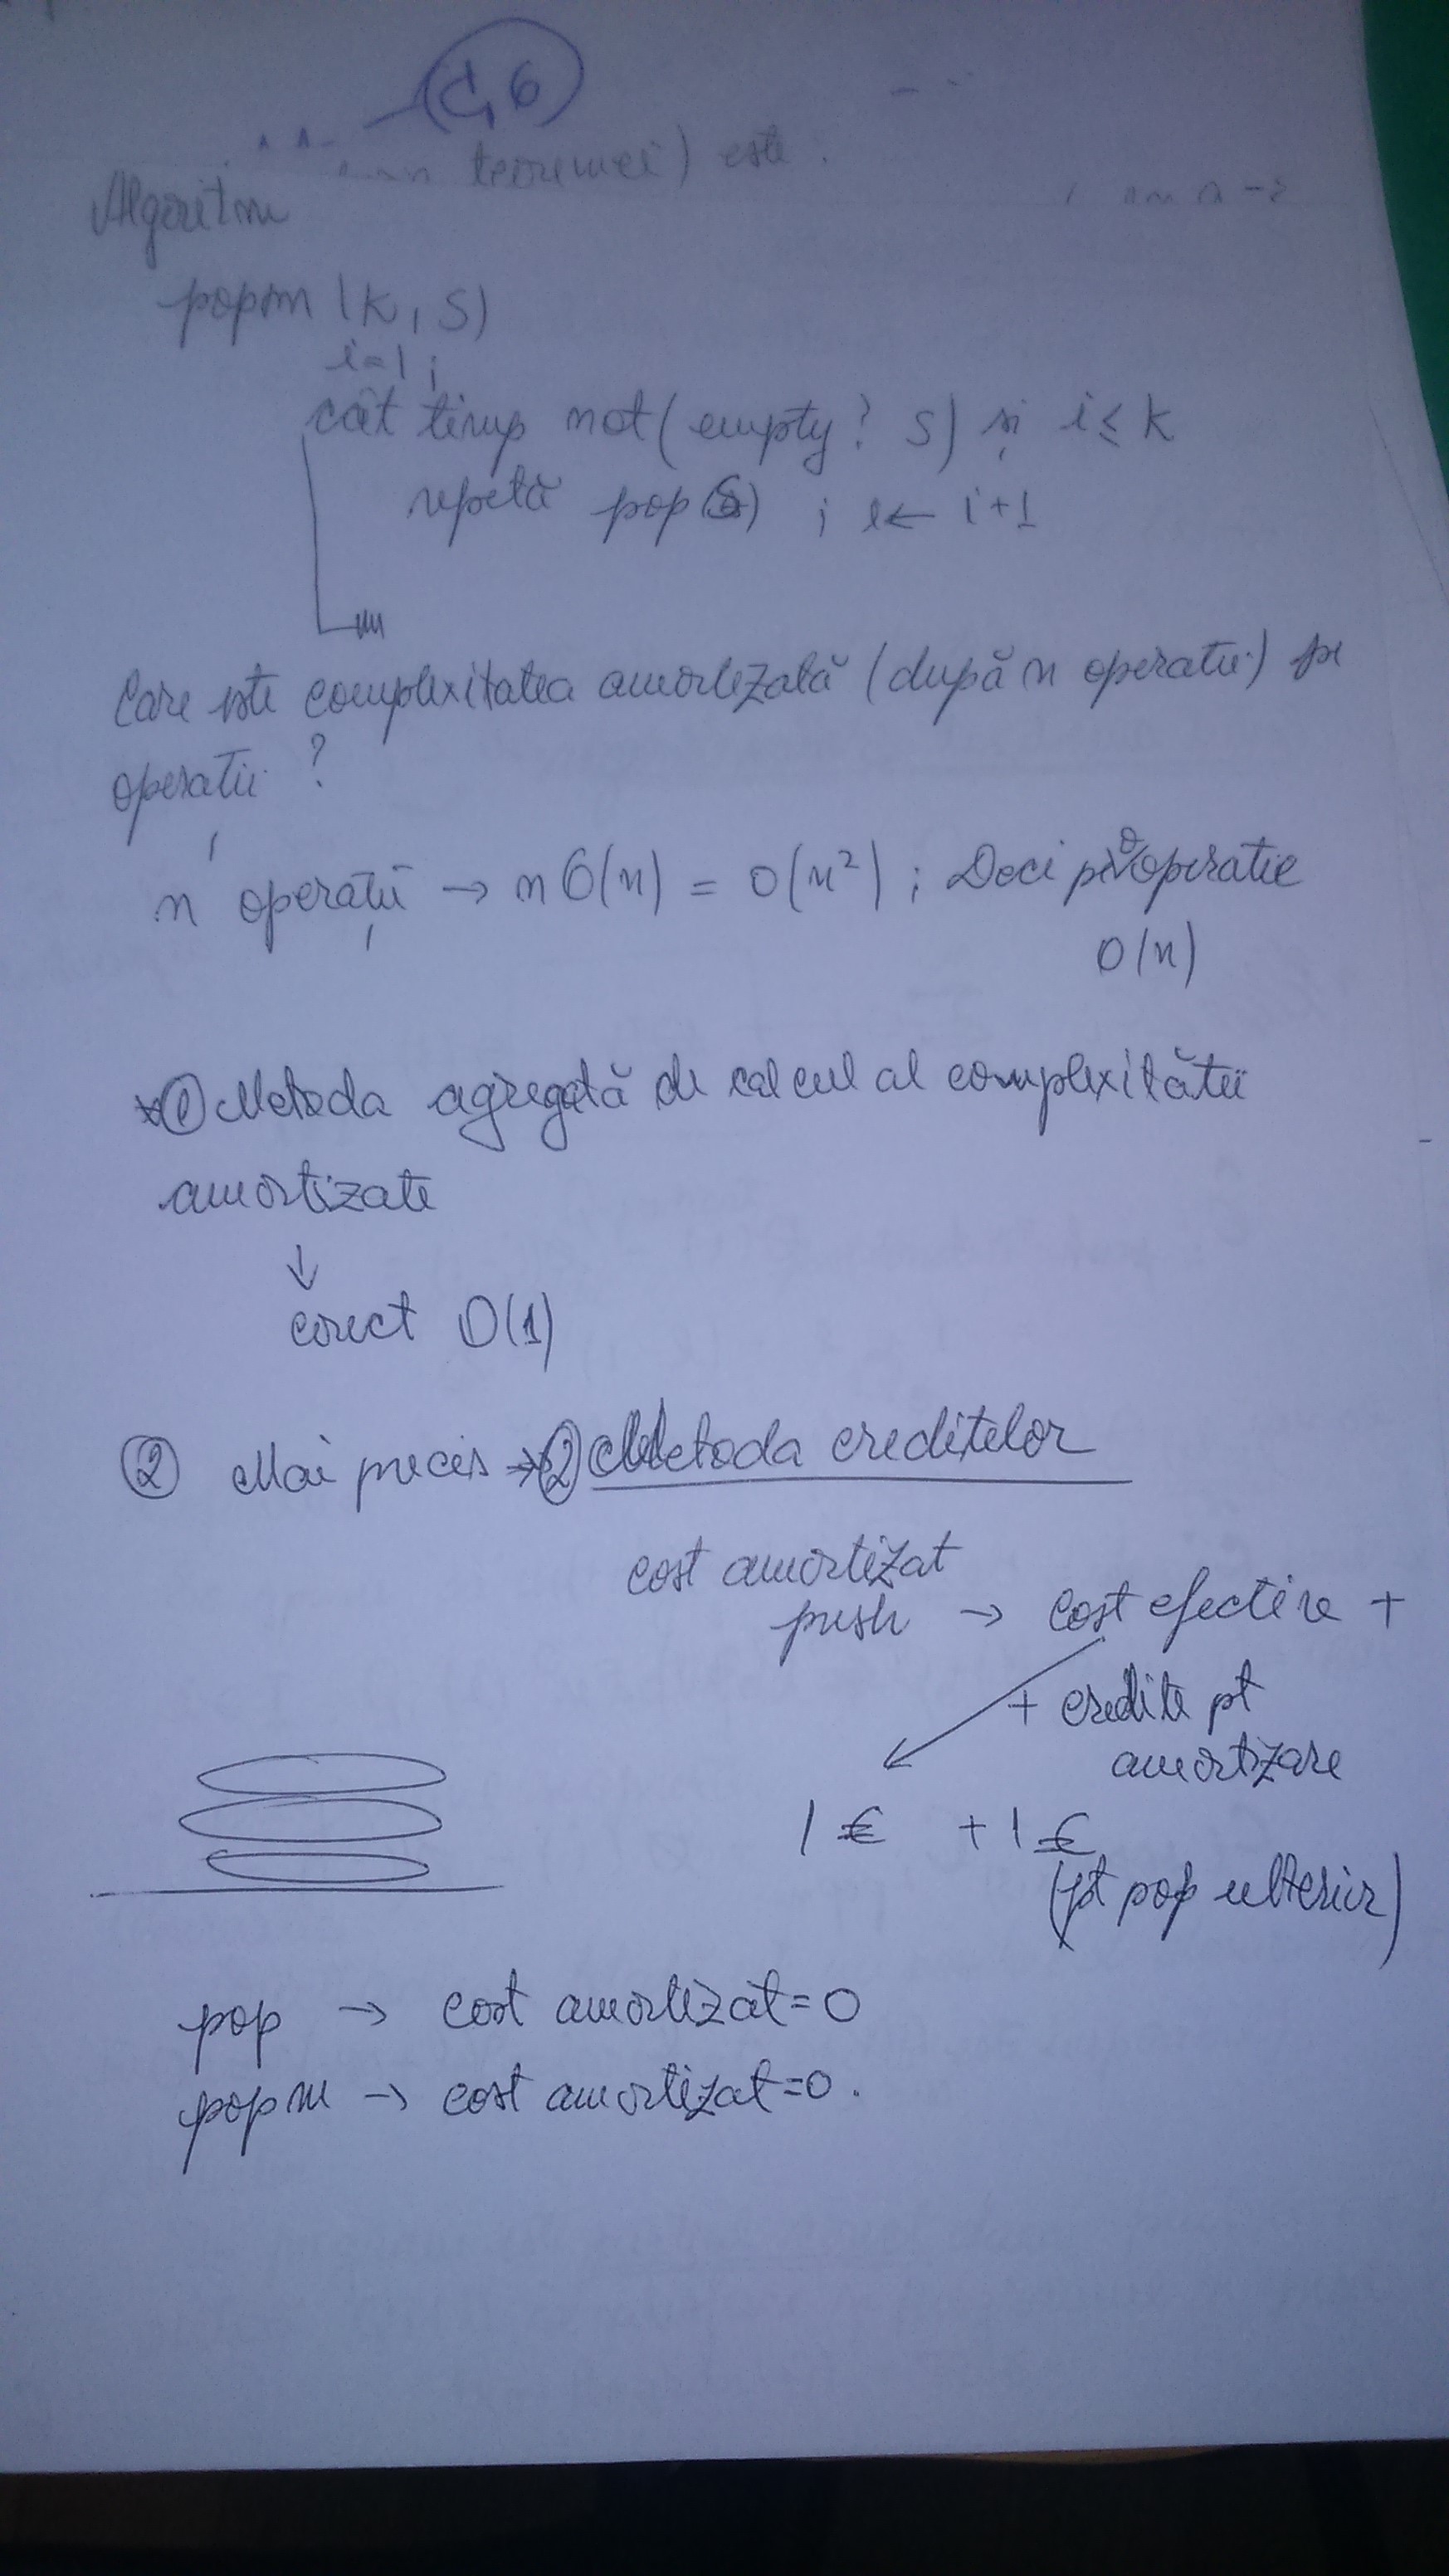 C, 6
teoremei) este :
Algoritm
popm (k, S)
i=1 ;
cât timp not(empty? S) și i ≤ k
repetă pop(S) ; i ← i+1
Care este complexitatea amortizată (după n operatii) pe
operatii ?
n operații → n O(n) = O(n²) ; Deci pe o operatie
O(n)
① Metoda agregată de calcul al complexitătii
amortizate
↓
corect O(1)
② Mai precis → ② Metoda creditelor
cost amortizat
push → cost efectiv +
+ credite pt
amortizare
1 € + 1 €
(pt pop ulterior)
pop → cost amortizat = 0
popm → cost amortizat = 0 .